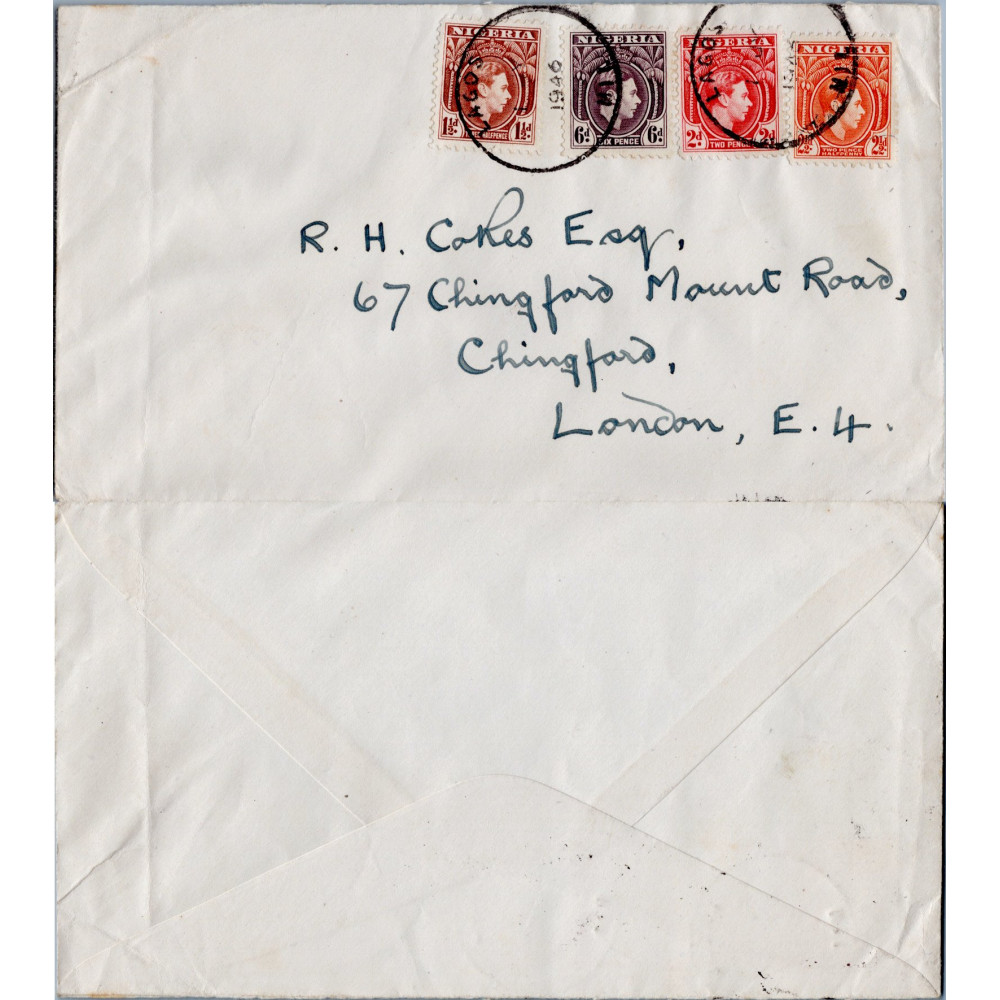 NIGERIA
1½d 1½d
HALFPENCE
NIGERIA
6d 6d
SIX PENCE
NIGERIA
2d 2d
TWO PENCE
NIGERIA
2½d 2½
TWO PENCE
HALFPENNY
LAGOS
1946
LAGOS
R. H. Cokes Esq,
67 Chingford Mount Road,
Chingford,
London, E. 4.